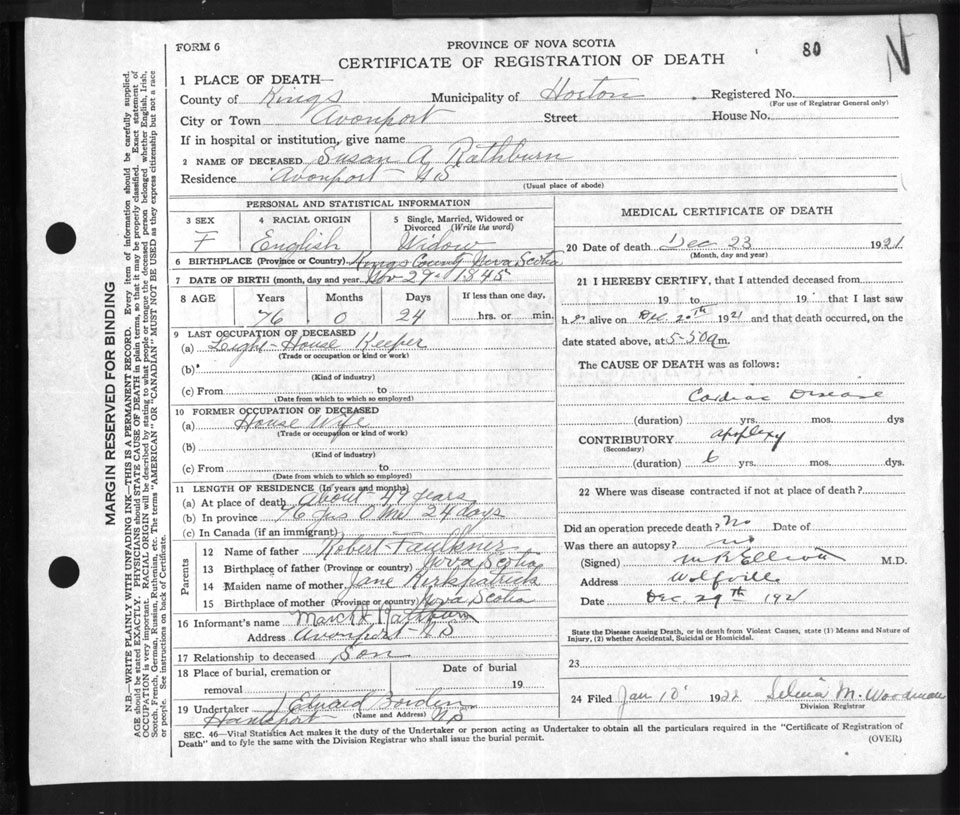 80
N
FORM 6
PROVINCE OF NOVA SCOTIA
CERTIFICATE OF REGISTRATION OF DEATH
1 PLACE OF DEATH—
County of Kings Municipality of Horton Registered No.
(For use of Registrar General only)
City or Town Avonport Street House No.
If in hospital or institution, give name
2 NAME OF DECEASED Susan A. Rathburn
Residence Avonport NS
(Usual place of abode)
PERSONAL AND STATISTICAL INFORMATION
3 SEX
F
4 RACIAL ORIGIN
English
5 Single, Married, Widowed or Divorced (Write the word)
Widow
6 BIRTHPLACE (Province or Country) Kings County Nova Scotia
7 DATE OF BIRTH (month, day and year) Nov 29 1845
8 AGE Years Months Days If less than one day,
76 0 24 hrs. or min.
9 LAST OCCUPATION OF DECEASED
(a) Light-House Keeper
(Trade or occupation or kind or work)
(b)
(Kind of industry)
(c) From to
(Date from which to which so employed)
10 FORMER OCCUPATION OF DECEASED
(a) House Wife
(Trade or occupation or kind of work)
(b)
(Kind of industry)
(c) From to
(Date from which to which so employed)
11 LENGTH OF RESIDENCE (In years and months)
(a) At place of death About 47 years
(b) In province 76 yrs 0 mo 24 days
(c) In Canada (if an immigrant)
Parents
12 Name of father Robert Faulkner
13 Birthplace of father (Province or country) Nova Scotia
14 Maiden name of mother Jane Kirkpatrick
15 Birthplace of mother (Province or country) Nova Scotia
16 Informant's name Rathburn
Address Avonport NS
17 Relationship to deceased Son
18 Place of burial, cremation or removal Date of burial 19
19 Undertaker J Edward Borden
Hantsport (Name and Address) NS
MEDICAL CERTIFICATE OF DEATH
20 Date of death Dec 23 1921
(Month, day and year)
21 I HEREBY CERTIFY, that I attended deceased from
19 to 19 that I last saw
h er alive on Dec. 20th 1921 and that death occurred, on the
date stated above, at 5-50 a m.
The CAUSE OF DEATH was as follows:
Cardiac Disease
(duration) yrs. mos. dys
CONTRIBUTORY apoplexy
(Secondary)
(duration) 6 yrs. mos. dys.
22 Where was disease contracted if not at place of death?
Did an operation precede death? No Date of
Was there an autopsy? no
(Signed) M R Elliott M.D.
Address Wolfville
Date Dec 29th 1921
State the Disease causing Death, or in death from Violent Causes, state (1) Means and Nature of Injury, (2) whether Accidental, Suicidal or Homicidal.
23
24 Filed Jan 10 1922 Selina M. Woodman
Division Registrar
SEC. 46—Vital Statistics Act makes it the duty of the Undertaker or person acting as Undertaker to obtain all the particulars required in the "Certificate of Registration of
Death" and to fyle the same with the Division Registrar who shall issue the burial permit. (OVER)
MARGIN RESERVED FOR BINDING
N.B.—WRITE PLAINLY WITH UNFADING INK—THIS IS A PERMANENT RECORD. Every item of information should be carefully supplied.
AGE should be stated EXACTLY. PHYSICIANS should STATE CAUSE OF DEATH in plain terms, so that it may be properly classified. Exact statement of
OCCUPATION is very important. RACIAL ORIGIN will be described by stating to what people or tongue the deceased person belonged whether English, Irish,
Scotch, French, German, Russian, Ruthenian, etc. The terms "AMERICAN" OR "CANADIAN" MUST NOT BE USED as they express citizenship but not a race
or people. See instructions on back of Certificate.